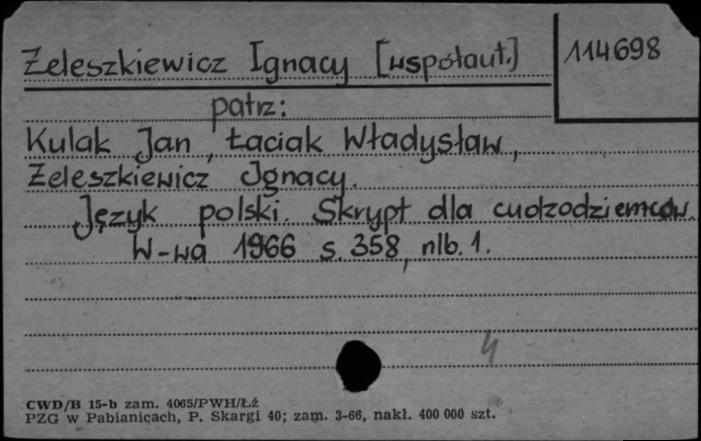 Żeleszkiewicz Ignacy [współaut.]
114698
patrz:
Kulak Jan, Łaciak Władysław,
Żeleszkiewicz Ignacy.
Język polski. Skrypt dla cudzodziemców.
W-wa 1966 s. 358, nlb. 1.
4
CWD/B 15-b zam. 4065/PWH/Łź
PZG w Pabianicach, P. Skargi 40; zam. 3-66, nakł. 400 000 szt.